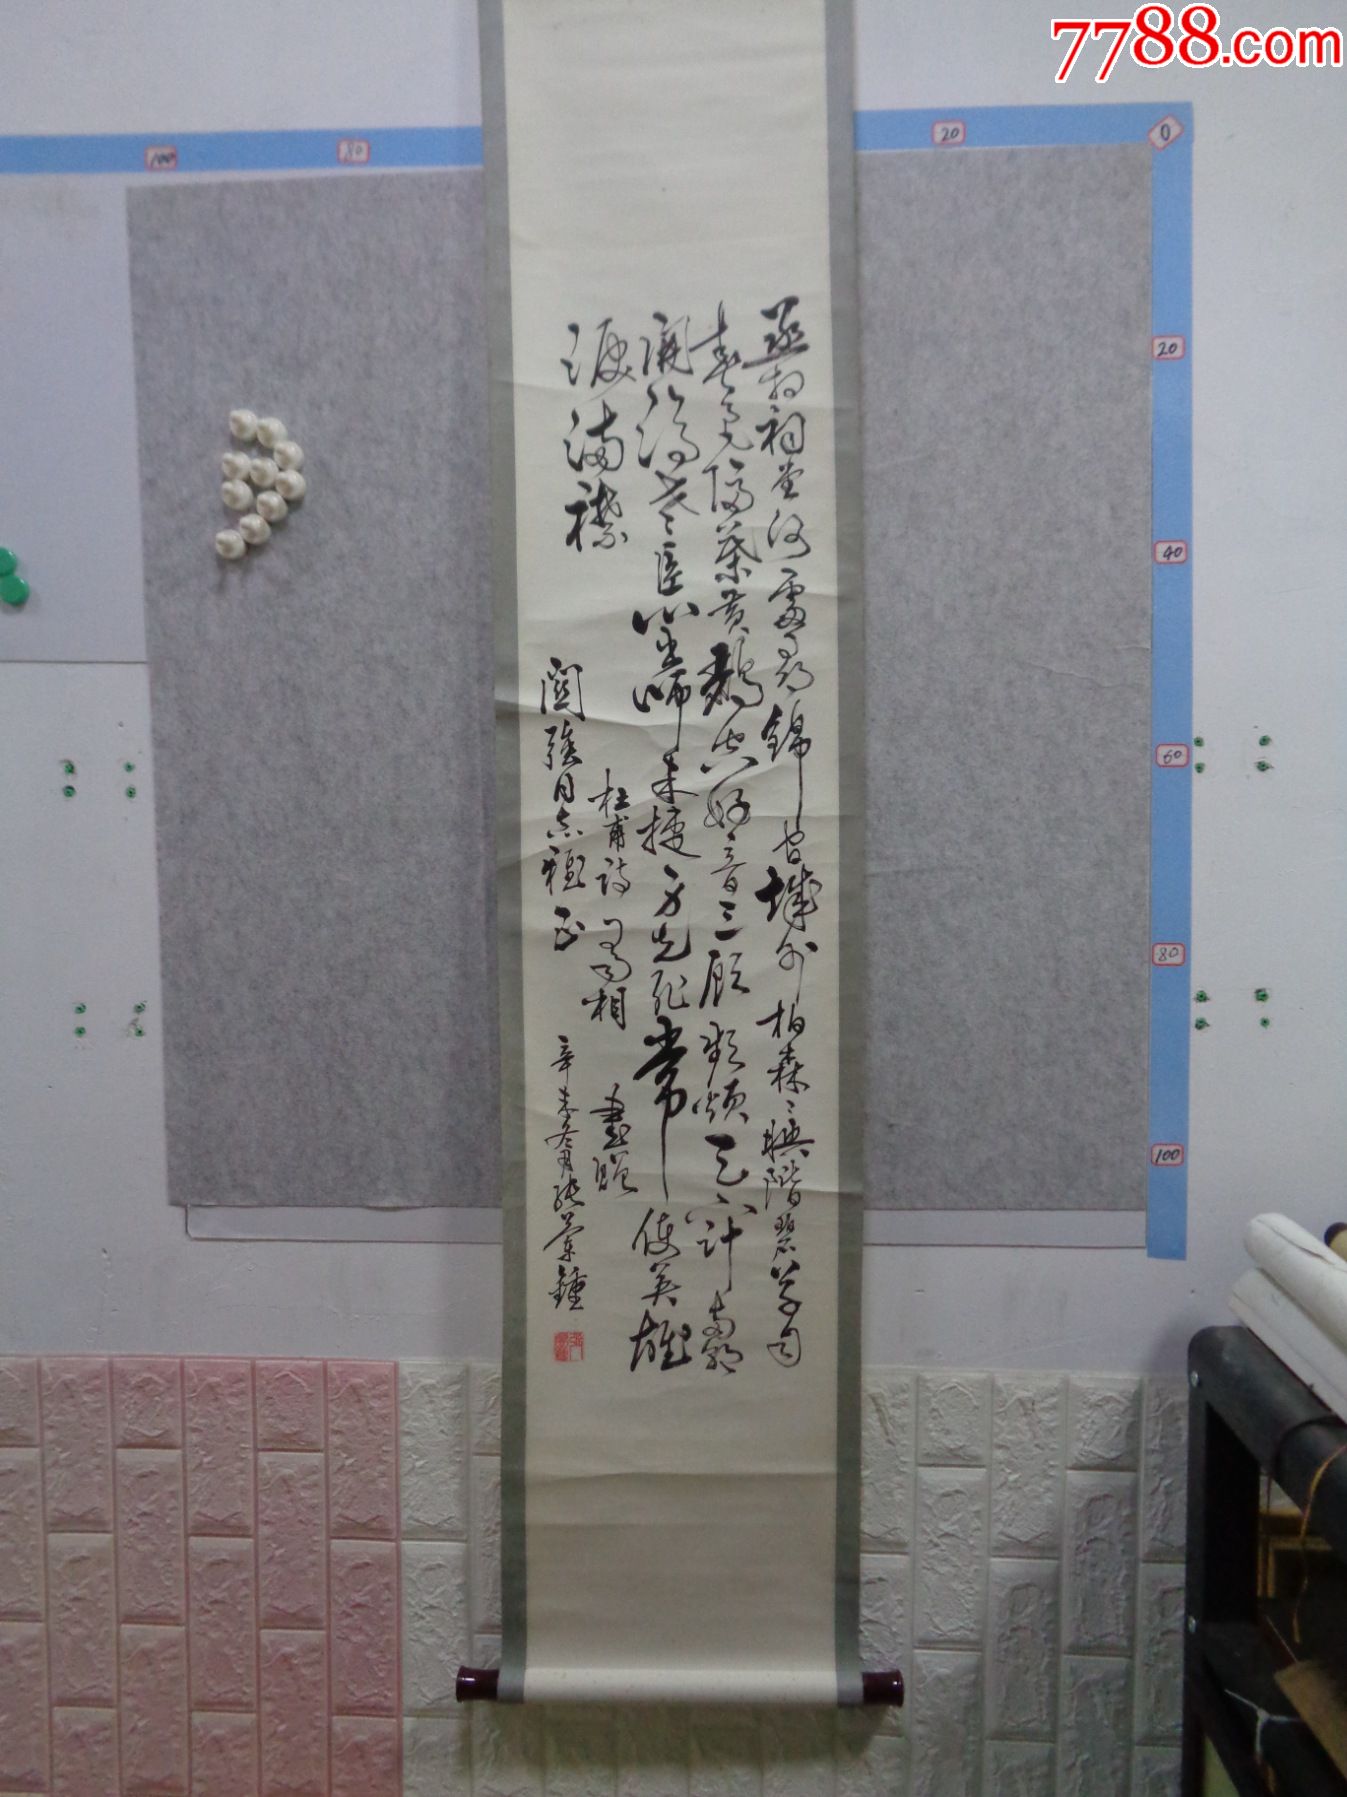 7788.com
100 80 20 0
20
40
60
80
100
丞相祠堂何處尋錦官城外柏森〻映階碧草自
春色隔葉黃鸝空好音三顧頻煩天下計兩朝
開濟老臣心出師未捷身先死常使英雄
淚滿襟
杜甫詩蜀相 書贈
關強同志雅正
辛未冬月張